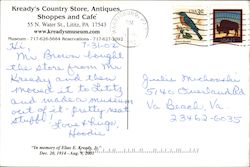 Kready's Country Store, Antiques,
Shoppes and Cafe
55 N. Water St., Lititz, PA 17543
www.kreadymuseum.com
Museum - 717-626-5684 Reservations - 717-627-2092
7-31-02
Hi,
Mr. Brown bought
the store from Mr.
Kready and then
moved it to Lititz
and made a museum
out of it - pretty neat
stuff!
Love & hugs
Julie
5140
Va Beach, Va
23462-6035
"In memory of Elias E. Kready, Jr."
Dec. 20, 1914 - Aug. 9, 2001